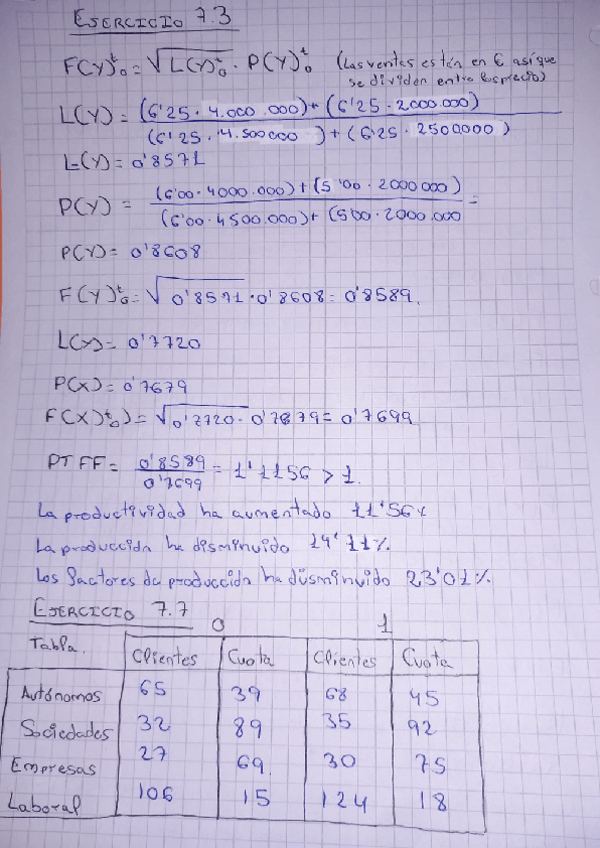 EJERCICIO 7.3
F(Y)ᵗ₀ = √L(Y)ᵗ₀ · P(Y)ᵗ₀ (Las ventas están en € así que
se dividen entre el precio)
L(Y) = (6'25 · 4.000.000) + (6'25 · 2000.000)
(6'25 · 4.500000) + (6'25 · 2500000)
L(Y) = 0'8571
P(Y) = (6'00 · 4000.000) + (5'00 · 2000000) =
(6'00 · 4500.000) + (5'00 · 2000.000
P(Y) = 0'8608
F(Y)ᵗ₀ = √0'8571 · 0'8608 = 0'8589.
L(X) = 0'7720
P(X) = 0'7679
F(X)ᵗ₀) = √0'7720 · 0'7679 = 0'7699
PTFF = 0'8589 / 0'7699 = 1'1156 > 1.
La productividad ha aumentado 11'56%
La producción ha disminuido 14'11%.
Los factores de producción ha disminuido 23'01%.
EJERCICIO 7.7
0 1
Tabla. Clientes Cuota Clientes Cuota
Autónomos 65 39 68 45
Sociedades 32 89 35 92
Empresas 27 69. 30 75
Laboral 106 15 124 18